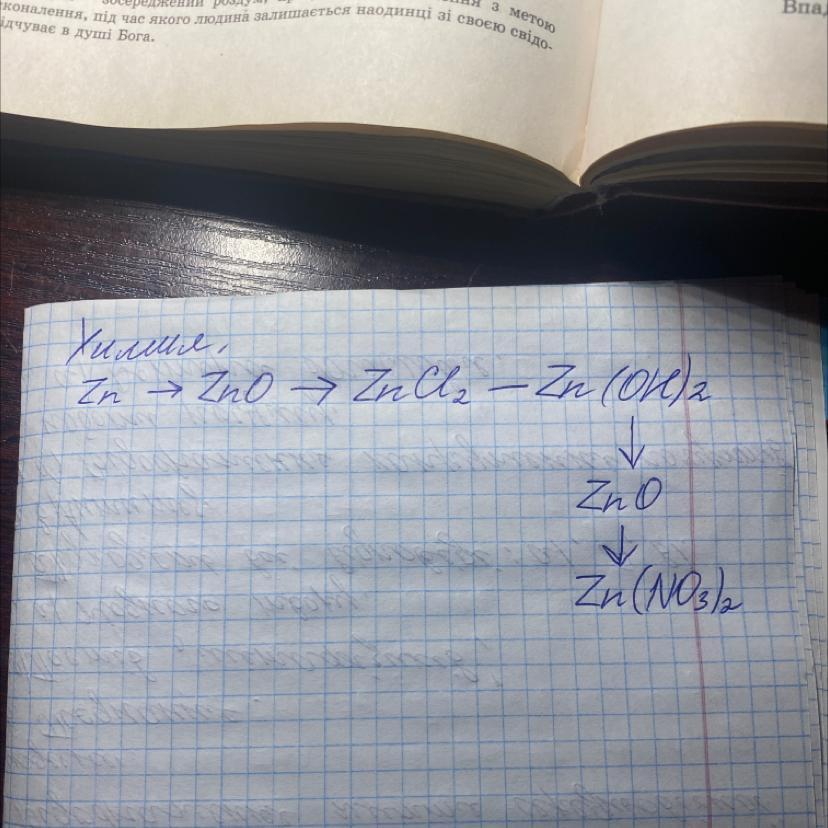 з метою
коналення, під час якого людина залишається наодинці зі своєю свідо-
ідчуває в душі Бога.
Впа
Химия,
Zn → ZnO → ZnCl₂ — Zn(OH)₂
↓
ZnO
↓
Zn(NO₃)₂